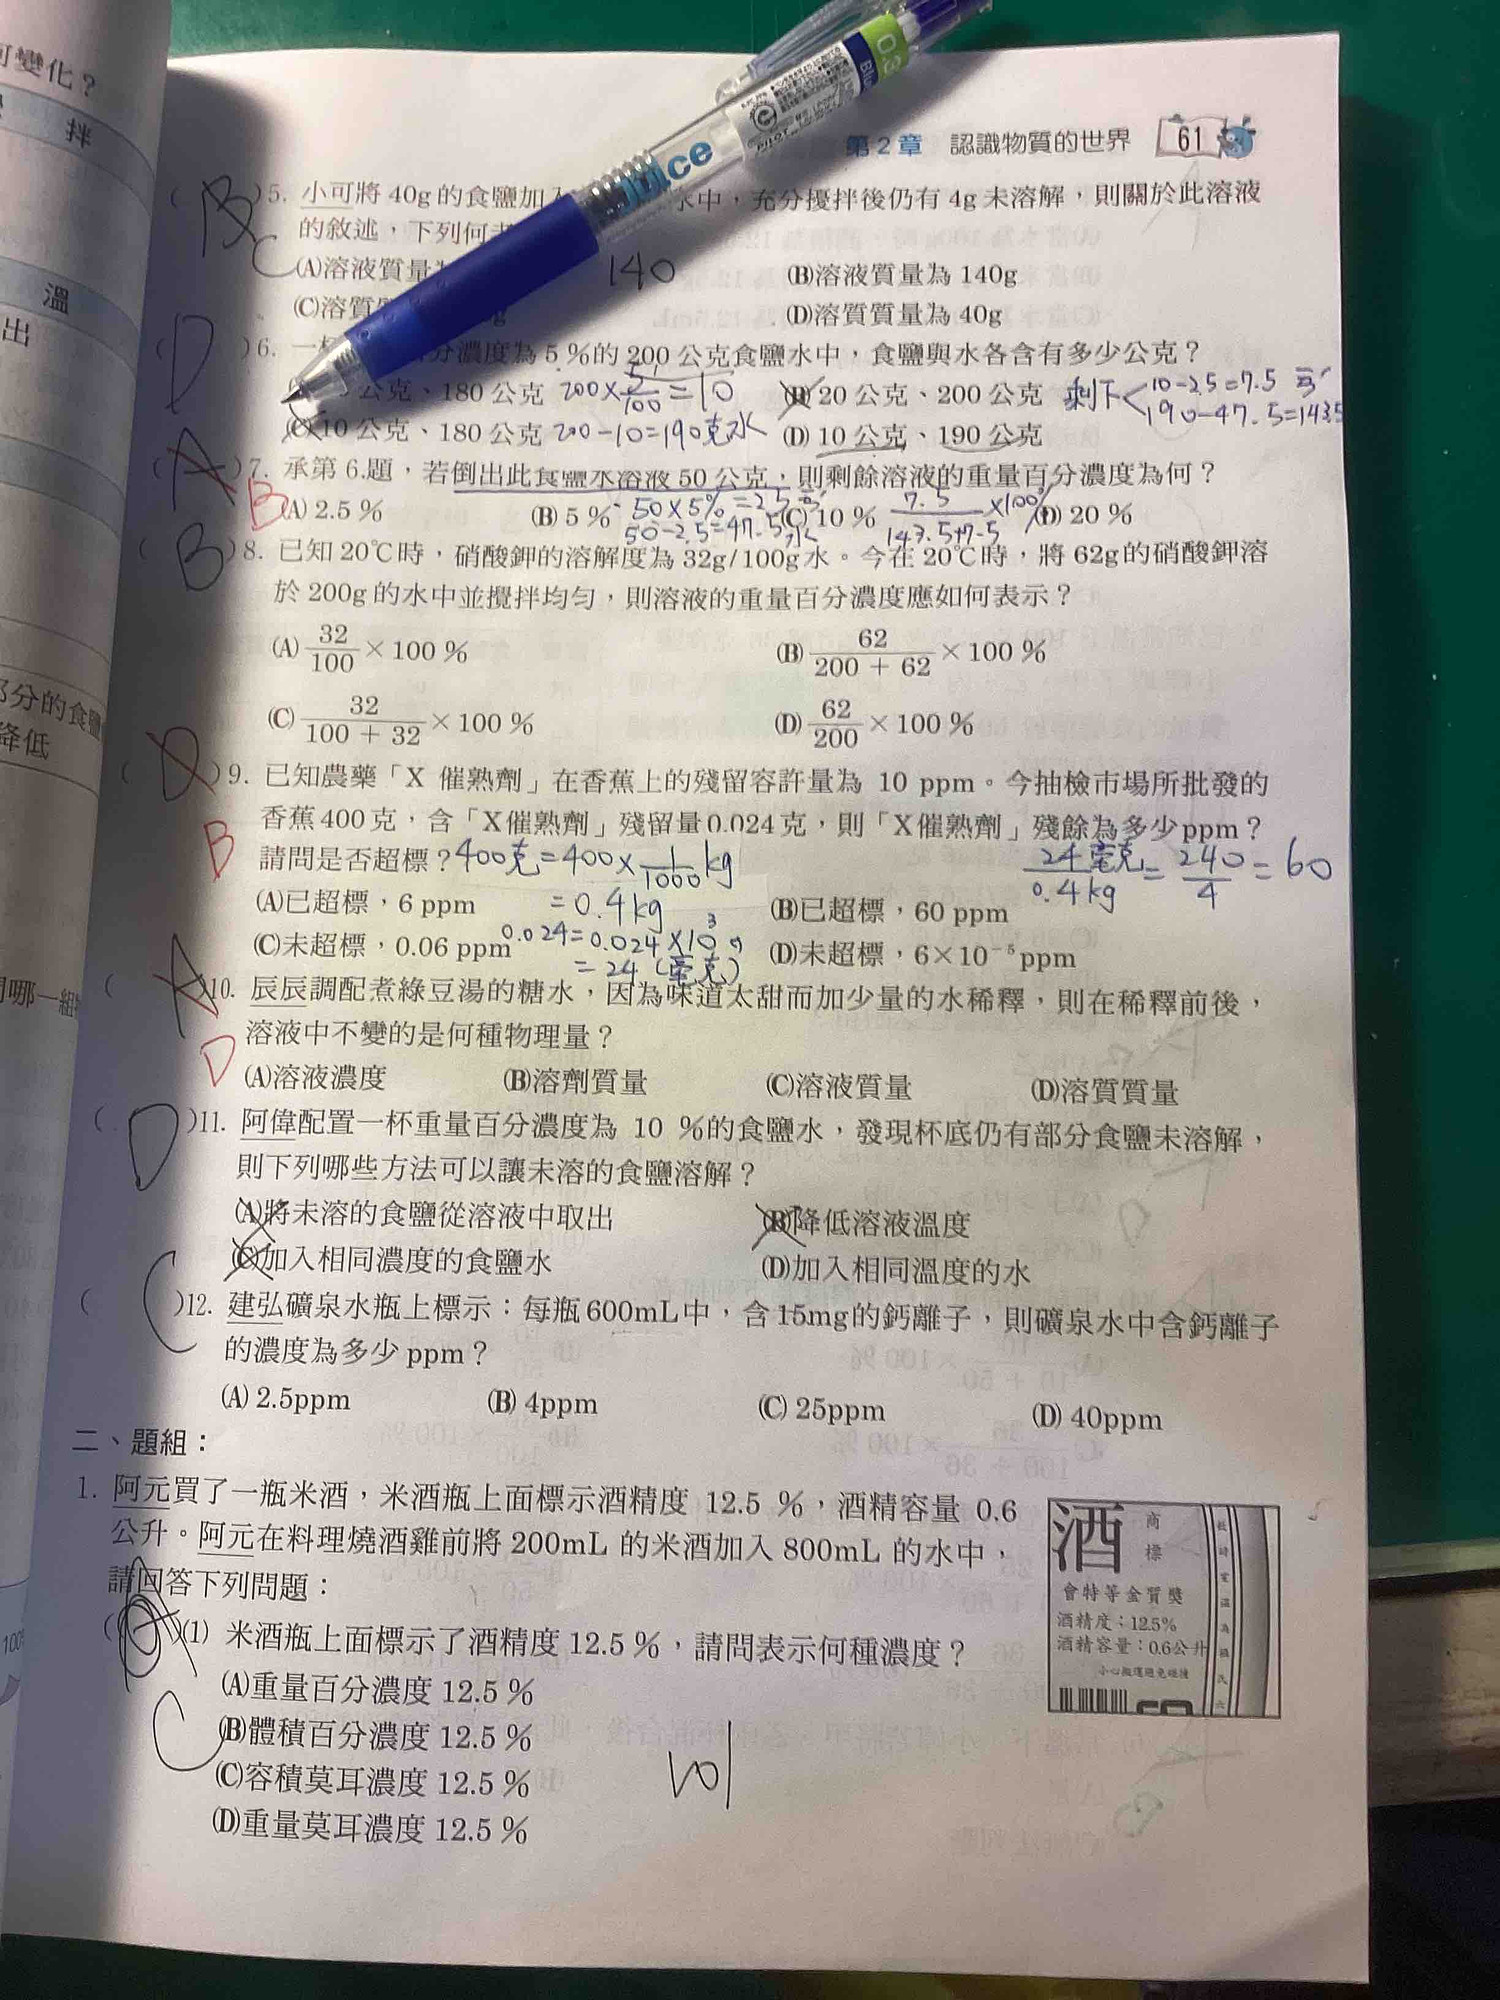 何變化？
拌
溫
出
部分的食鹽
降低
哪一組
第2章 認識物質的世界 61
0.3
Juice
PILOT
B )5. 小可將 40g 的食鹽加入 水中，充分攪拌後仍有 4g 未溶解，則關於此溶液
的敘述，下列何者
C
(A)溶液質量為 140 (B)溶液質量為 140g
(C)溶質質 g (D)溶質質量為 40g
( D )6. 一杯 分濃度為 5 %的 200 公克食鹽水中，食鹽與水各含有多少公克？
公克、180 公克 200×5/100=10 (B) 20 公克、200 公克 剩下<10-2.5=7.5
(C) 10 公克、180 公克 200-10=190克水 (D) 10 公克、190 公克 190-47.5=143.5
( A )7. 承第 6.題，若倒出此食鹽水溶液 50 公克，則剩餘溶液的重量百分濃度為何？
B (A) 2.5 % (B) 5 % 50×5%=2.5 (C) 10 % 7.5/143.5+7.5 ×100% (D) 20 %
50-2.5=47.5水
( B )8. 已知 20℃時，硝酸鉀的溶解度為 32g/100g 水。今在 20℃時，將 62g 的硝酸鉀溶
於 200g 的水中並攪拌均勻，則溶液的重量百分濃度應如何表示？
(A) 32/100 × 100 % (B) 62/200 + 62 × 100 %
(C) 32/100 + 32 × 100 % (D) 62/200 × 100 %
( D )9. 已知農藥「X 催熟劑」在香蕉上的殘留容許量為 10 ppm。今抽檢市場所批發的
香蕉 400 克，含「X催熟劑」殘留量 0.024 克，則「X催熟劑」殘餘為多少ppm？
B 請問是否超標？ 400克=400×1/1000 kg 24毫克/0.4kg = 240/4 = 60
(A)已超標，6 ppm =0.4kg (B)已超標，60 ppm
(C)未超標，0.06 ppm 0.024=0.024×10³ (D)未超標，6×10⁻⁵ppm
=24(毫克)
( A )10. 辰辰調配煮綠豆湯的糖水，因為味道太甜而加少量的水稀釋，則在稀釋前後，
溶液中不變的是何種物理量？
D (A)溶液濃度 (B)溶劑質量 (C)溶液質量 (D)溶質質量
( D )11. 阿偉配置一杯重量百分濃度為 10 %的食鹽水，發現杯底仍有部分食鹽未溶解，
則下列哪些方法可以讓未溶的食鹽溶解？
(A)將未溶的食鹽從溶液中取出 (B)降低溶液溫度
(C)加入相同濃度的食鹽水 (D)加入相同溫度的水
( C )12. 建弘礦泉水瓶上標示：每瓶 600mL中，含 15mg的鈣離子，則礦泉水中含鈣離子
的濃度為多少 ppm？
(A) 2.5ppm (B) 4ppm (C) 25ppm (D) 40ppm
二、題組：
1. 阿元買了一瓶米酒，米酒瓶上面標示酒精度 12.5 %，酒精容量 0.6
公升。阿元在料理燒酒雞前將 200mL 的米酒加入 800mL 的水中，
請回答下列問題：
( )(1) 米酒瓶上面標示了酒精度 12.5 %，請問表示何種濃度？
(A)重量百分濃度 12.5 %
C (B)體積百分濃度 12.5 %
(C)容積莫耳濃度 12.5 %
(D)重量莫耳濃度 12.5 %
酒
商標
會特等金質獎
酒精度：12.5%
酒精容量：0.6公升
小心搬運避免碰撞